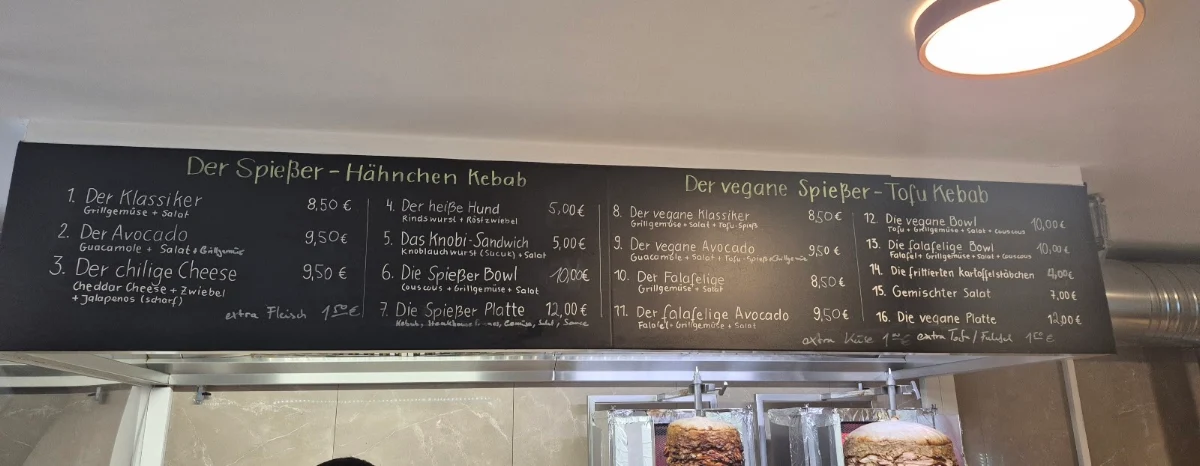 Der Spießer - Hähnchen Kebab
1. Der Klassiker 8,50 €
Grillgemüse + Salat
2. Der Avocado 9,50 €
Guacamole + Salat + Grillgemüse
3. Der chilige Cheese 9,50 €
Cheddar Cheese + Zwiebel
+ Jalapenos (scharf)
extra Fleisch 1,50 €
4. Der heiße Hund 5,00 €
Rindswurst + Röstzwiebel
5. Das Knobi-Sandwich 5,00 €
Knoblauchwurst (Sucuk) + Salat
6. Die Spießer Bowl 10,00 €
Couscous + Grillgemüse + Salat
7. Die Spießer Platte 12,00 €
Kebab, Gemüse, Salat, Sauce
Der vegane Spießer - Tofu Kebab
8. Der vegane Klassiker 8,50 €
Grillgemüse + Salat + Tofu-Spieß
9. Der vegane Avocado 9,50 €
Guacamole + Salat + Tofu-Spieß + Grillgemüse
10. Der Falafelige 8,50 €
Grillgemüse + Salat
11. Der falafelige Avocado 9,50 €
Falafel + Grillgemüse + Salat
12. Die vegane Bowl 10,00 €
Tofu + Grillgemüse + Salat + Couscous
13. Die falafelige Bowl 10,00 €
Falafel + Grillgemüse + Salat + Couscous
14. Die frittierten Kartoffelstäbchen 4,00 €
15. Gemischter Salat 7,00 €
16. Die vegane Platte 12,00 €
extra Käse extra Tofu / Falafel